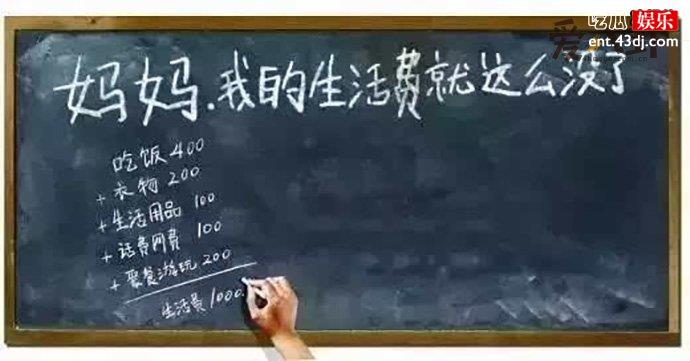 吃瓜 娱乐
ent.43dj.com
妈妈.我的生活费就这么没了
吃饭 400
+ 衣物 200
+ 生活用品 100
+ 话费网费 100
+ 聚餐游玩 200
生活费 1000